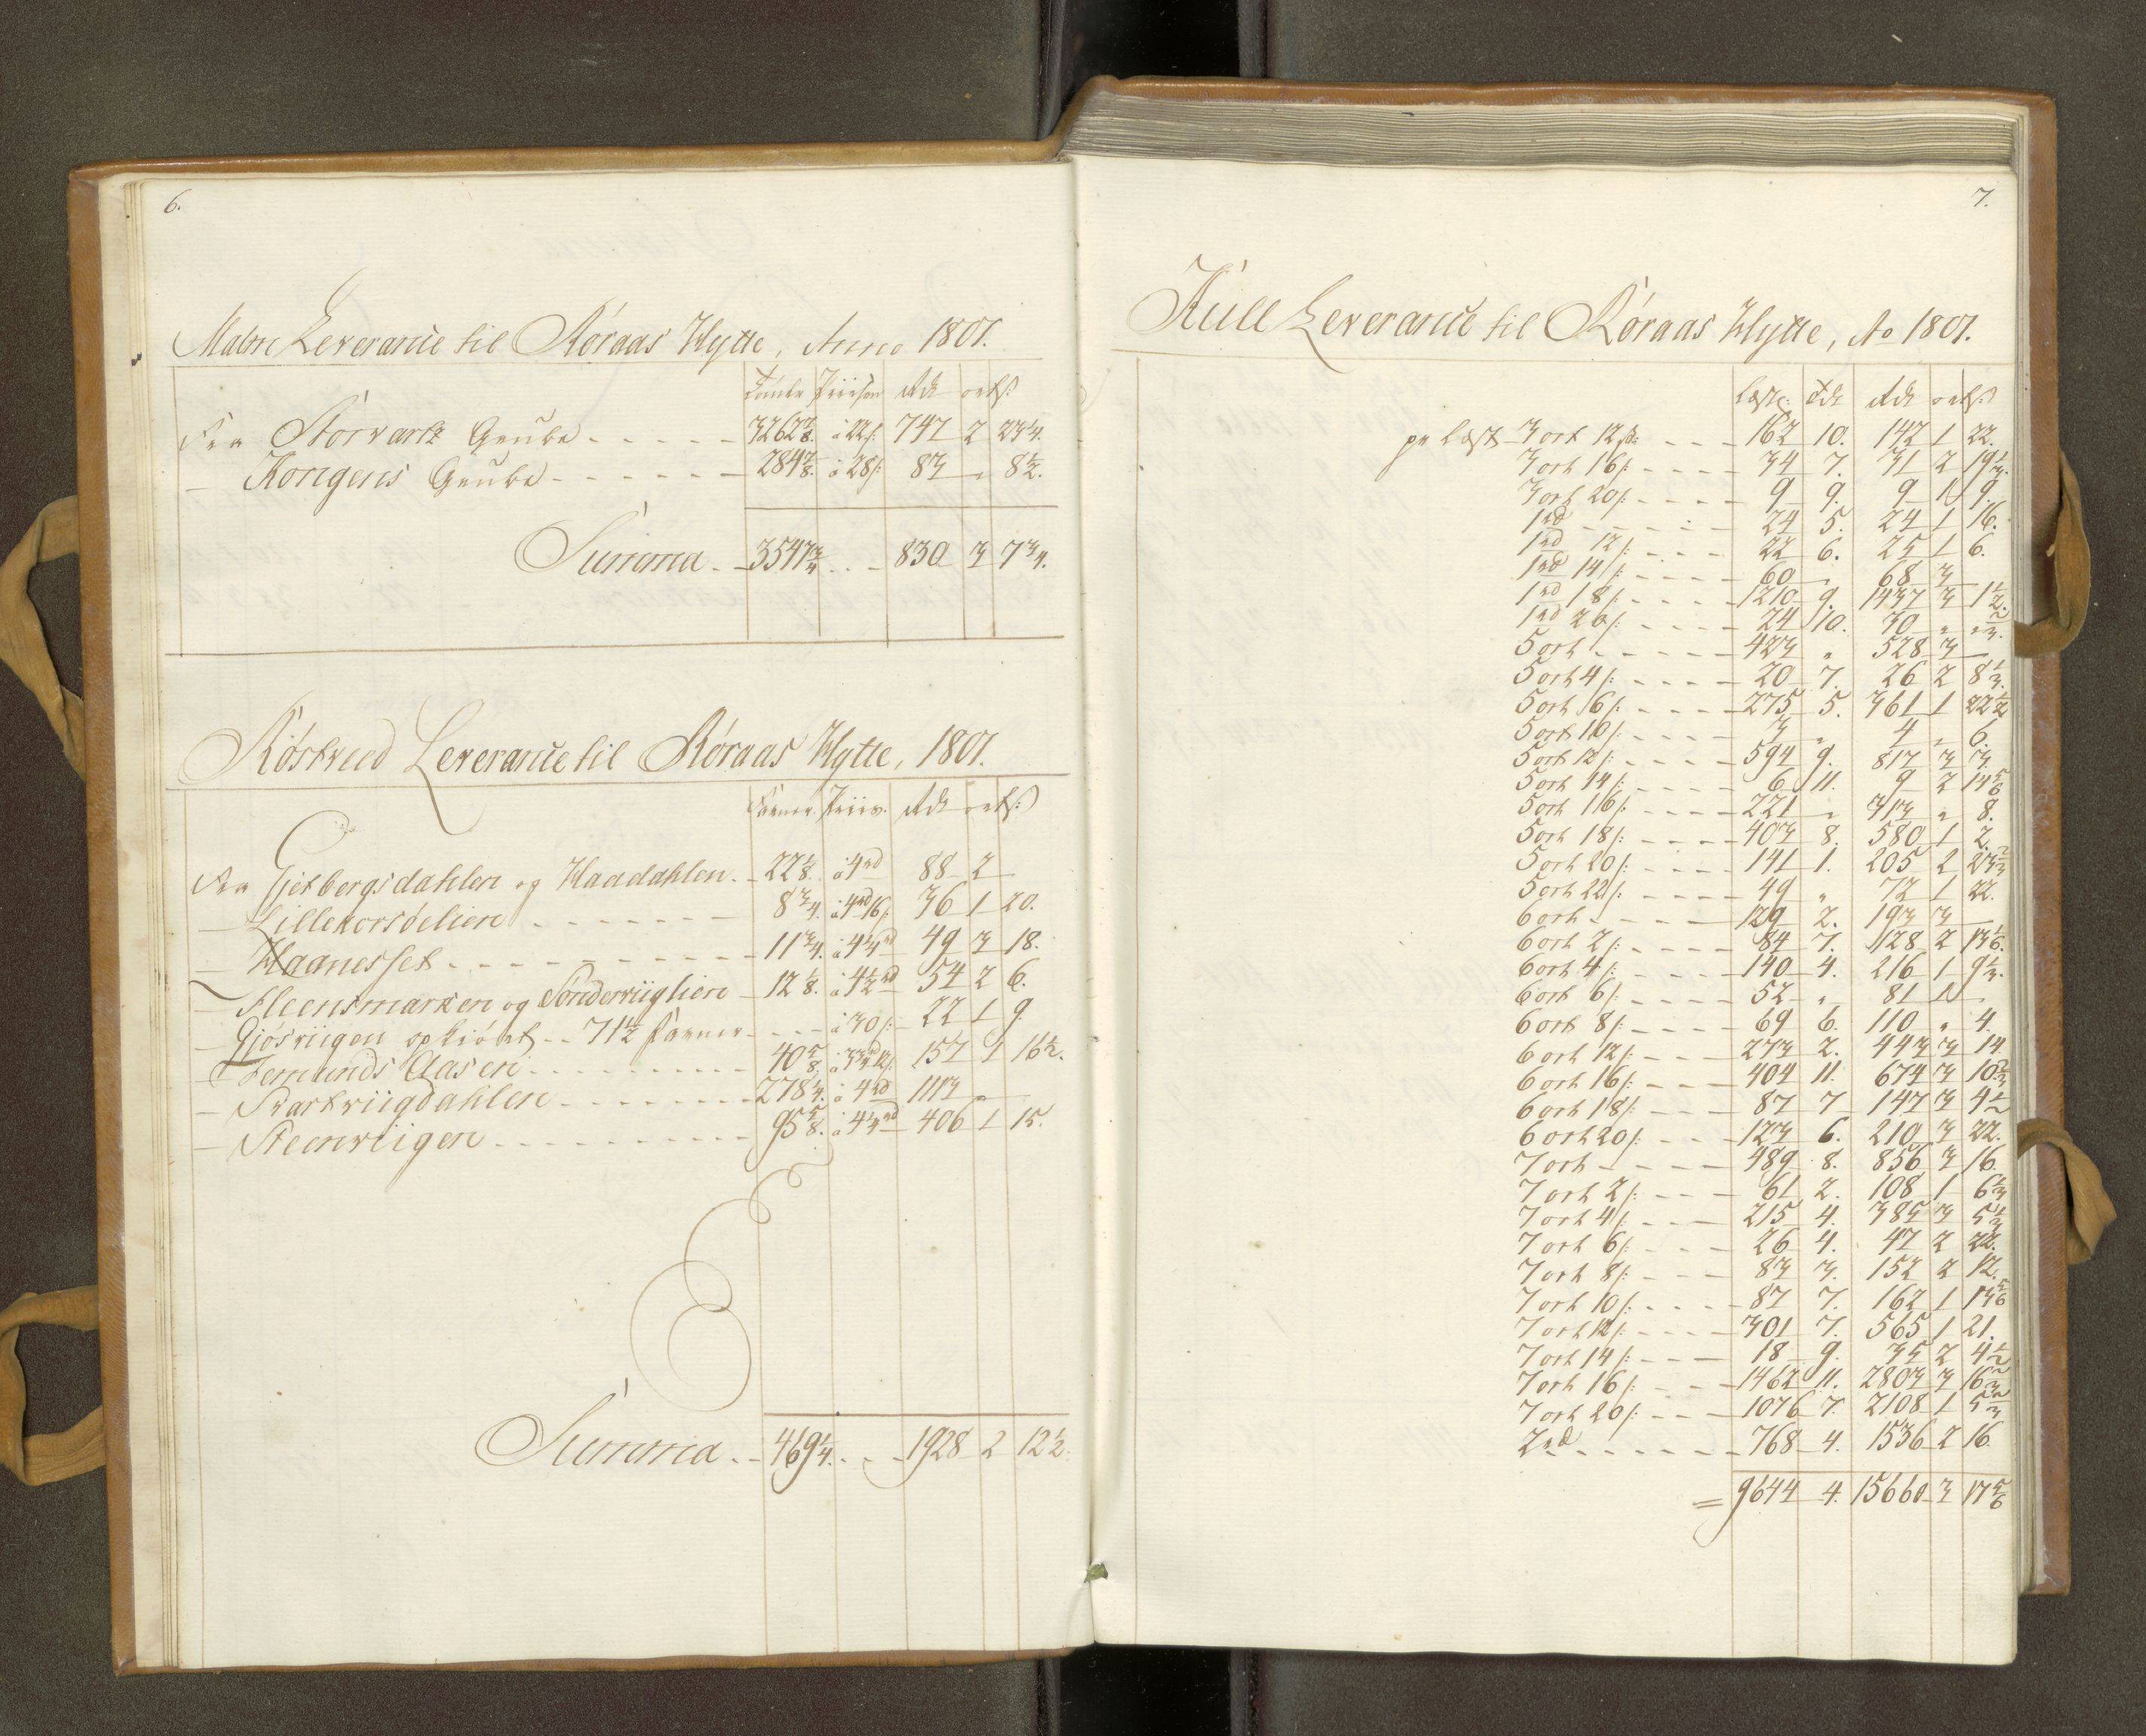 6.
Malm Leverance til Røraas Hytte, Anno 1801.
Tønder Priisen Rdr ort ß:
Fra Storvarts Grube - - - - - 3262 7/8. à 22 ß: 747 2 23 1/4.
— Kongens Grube - - - - - - 284 7/8. à 28 ß: 83 „ 8 1/2.
Summa - - 3547 3/4 - - - 830 3 7 3/4.
Røstved Leverance til Røraas Hytte, 1801.
Favner. Priis. Rdr ort ß:
Fra Gjetbergsdahlen og Haadahlen - 22 1/8. à 4 rd 88 2 —
— Lillekorsøelien - - - - - - - 8 3/4. à 4 rd 16 ß: 36 1 20.
— Haanesset - - - - - - - - - - 11 3/4. à 4 1/4 rd 49 3 18.
— Fleensmarken og Sønderviiglien - 12 1/8. à 4 1/2 rd 54 2 6.
— Gjøsviigen opkiørt - - 71 1/2 Favner - - - - à 30 ß: 22 1 9.
— Femunds Aasen - - - - - - - - - 40 5/8. à 3 3/4 rd 12 ß: 157 1 16 1/2.
— Svartviigdahlen - - - - - - - - 278 1/4. à 4 rd 1113 „ —
— Steenviigen - - - - - - - - - - - 95 5/8. à 4 1/4 rd 406 1 15.
Summa - - 469 1/4. - - - 1928 2 12 1/2.
7.
Kull Leverance til Røraas Hytte, Ao 1801.
Læster: Tdr Rdr ort ß:
pr Læst - 3 ort 12 ß: - - - 162 10. 142 1 22.
3 ort 16 ß: - - - - 34 7. 31 2 19 1/3.
3 ort 20 ß: - - - - 9 9. 9 1 9.
1 rd - - - - - - - 24 5. 24 1 16.
1 rd 12 ß: - - - - 22 6. 25 1 6.
1 rd 14 ß: - - - - 60 „ 68 3 —
1 rd 18 ß: - - - - 1210 9. 1437 3 1 1/2.
1 rd 20 ß: - - - - 24 10. 30 „ „ 2/3.
5 ort - - - - - - 423 „ 528 3 —
5 ort 4 ß: - - - - 20 7. 26 2 8 1/3.
5 ort 6 ß: - - - - 275 5. 361 1 22 1/2
5 ort 10 ß: - - - - 3 „ 4 „ 6.
5 ort 12 ß: - - - - 594 9. 817 3 3.
5 ort 14 ß: - - - - 6 11. 9 2 14 5/6
5 ort 16 ß: - - - - 221 „ 313 „ 8.
5 ort 18 ß: - - - - 403 8. 580 1 2.
5 ort 20 ß: - - - - 141 1. 205 2 23 2/3
5 ort 22 ß: - - - - 49 „ 72 1 22.
6 ort - - - - - - 129 2. 193 3 —
6 ort 2 ß: - - - - 84 7. 128 2 13 1/6.
6 ort 4 ß: - - - - 140 4. 216 1 9 1/3.
6 ort 6 ß: - - - - 52 „ 81 1 —
6 ort 8 ß: - - - - 69 6. 110 „ 4.
6 ort 12 ß: - - - - 273 2. 443 3 14.
6 ort 16 ß: - - - 404 11. 674 3 10 2/3
6 ort 18 ß: - - - 87 7 147 3 4 1/2
6 ort 20 ß: - - - 123 6. 210 3 22.
7 ort - - - - - 489 8. 856 3 16.
7 ort 2 ß: - - - 61 2. 108 1 6 1/3
7 ort 4 ß: - - - 215 4. 385 3 5 1/3
7 ort 6 ß: - - - 26 4. 47 2 22.
7 ort 8 ß: - - - 83 3. 152 2 12.
7 ort 10 ß: - - - - 87 7. 162 1 13 5/6
7 ort 12 ß: - - - - 301 7. 565 1 21.
7 ort 14 ß: - - - 18 9. 35 2 4 1/2
7 ort 16 ß: - - - 1462 11. 2803 3 16 2/3
7 ort 20 ß: - - - 1076 7. 2108 1 5 2/3
2 rd - - - - - - - 768 4. 1536 2 16.
= 9644 4. 15660 3 17 5/6